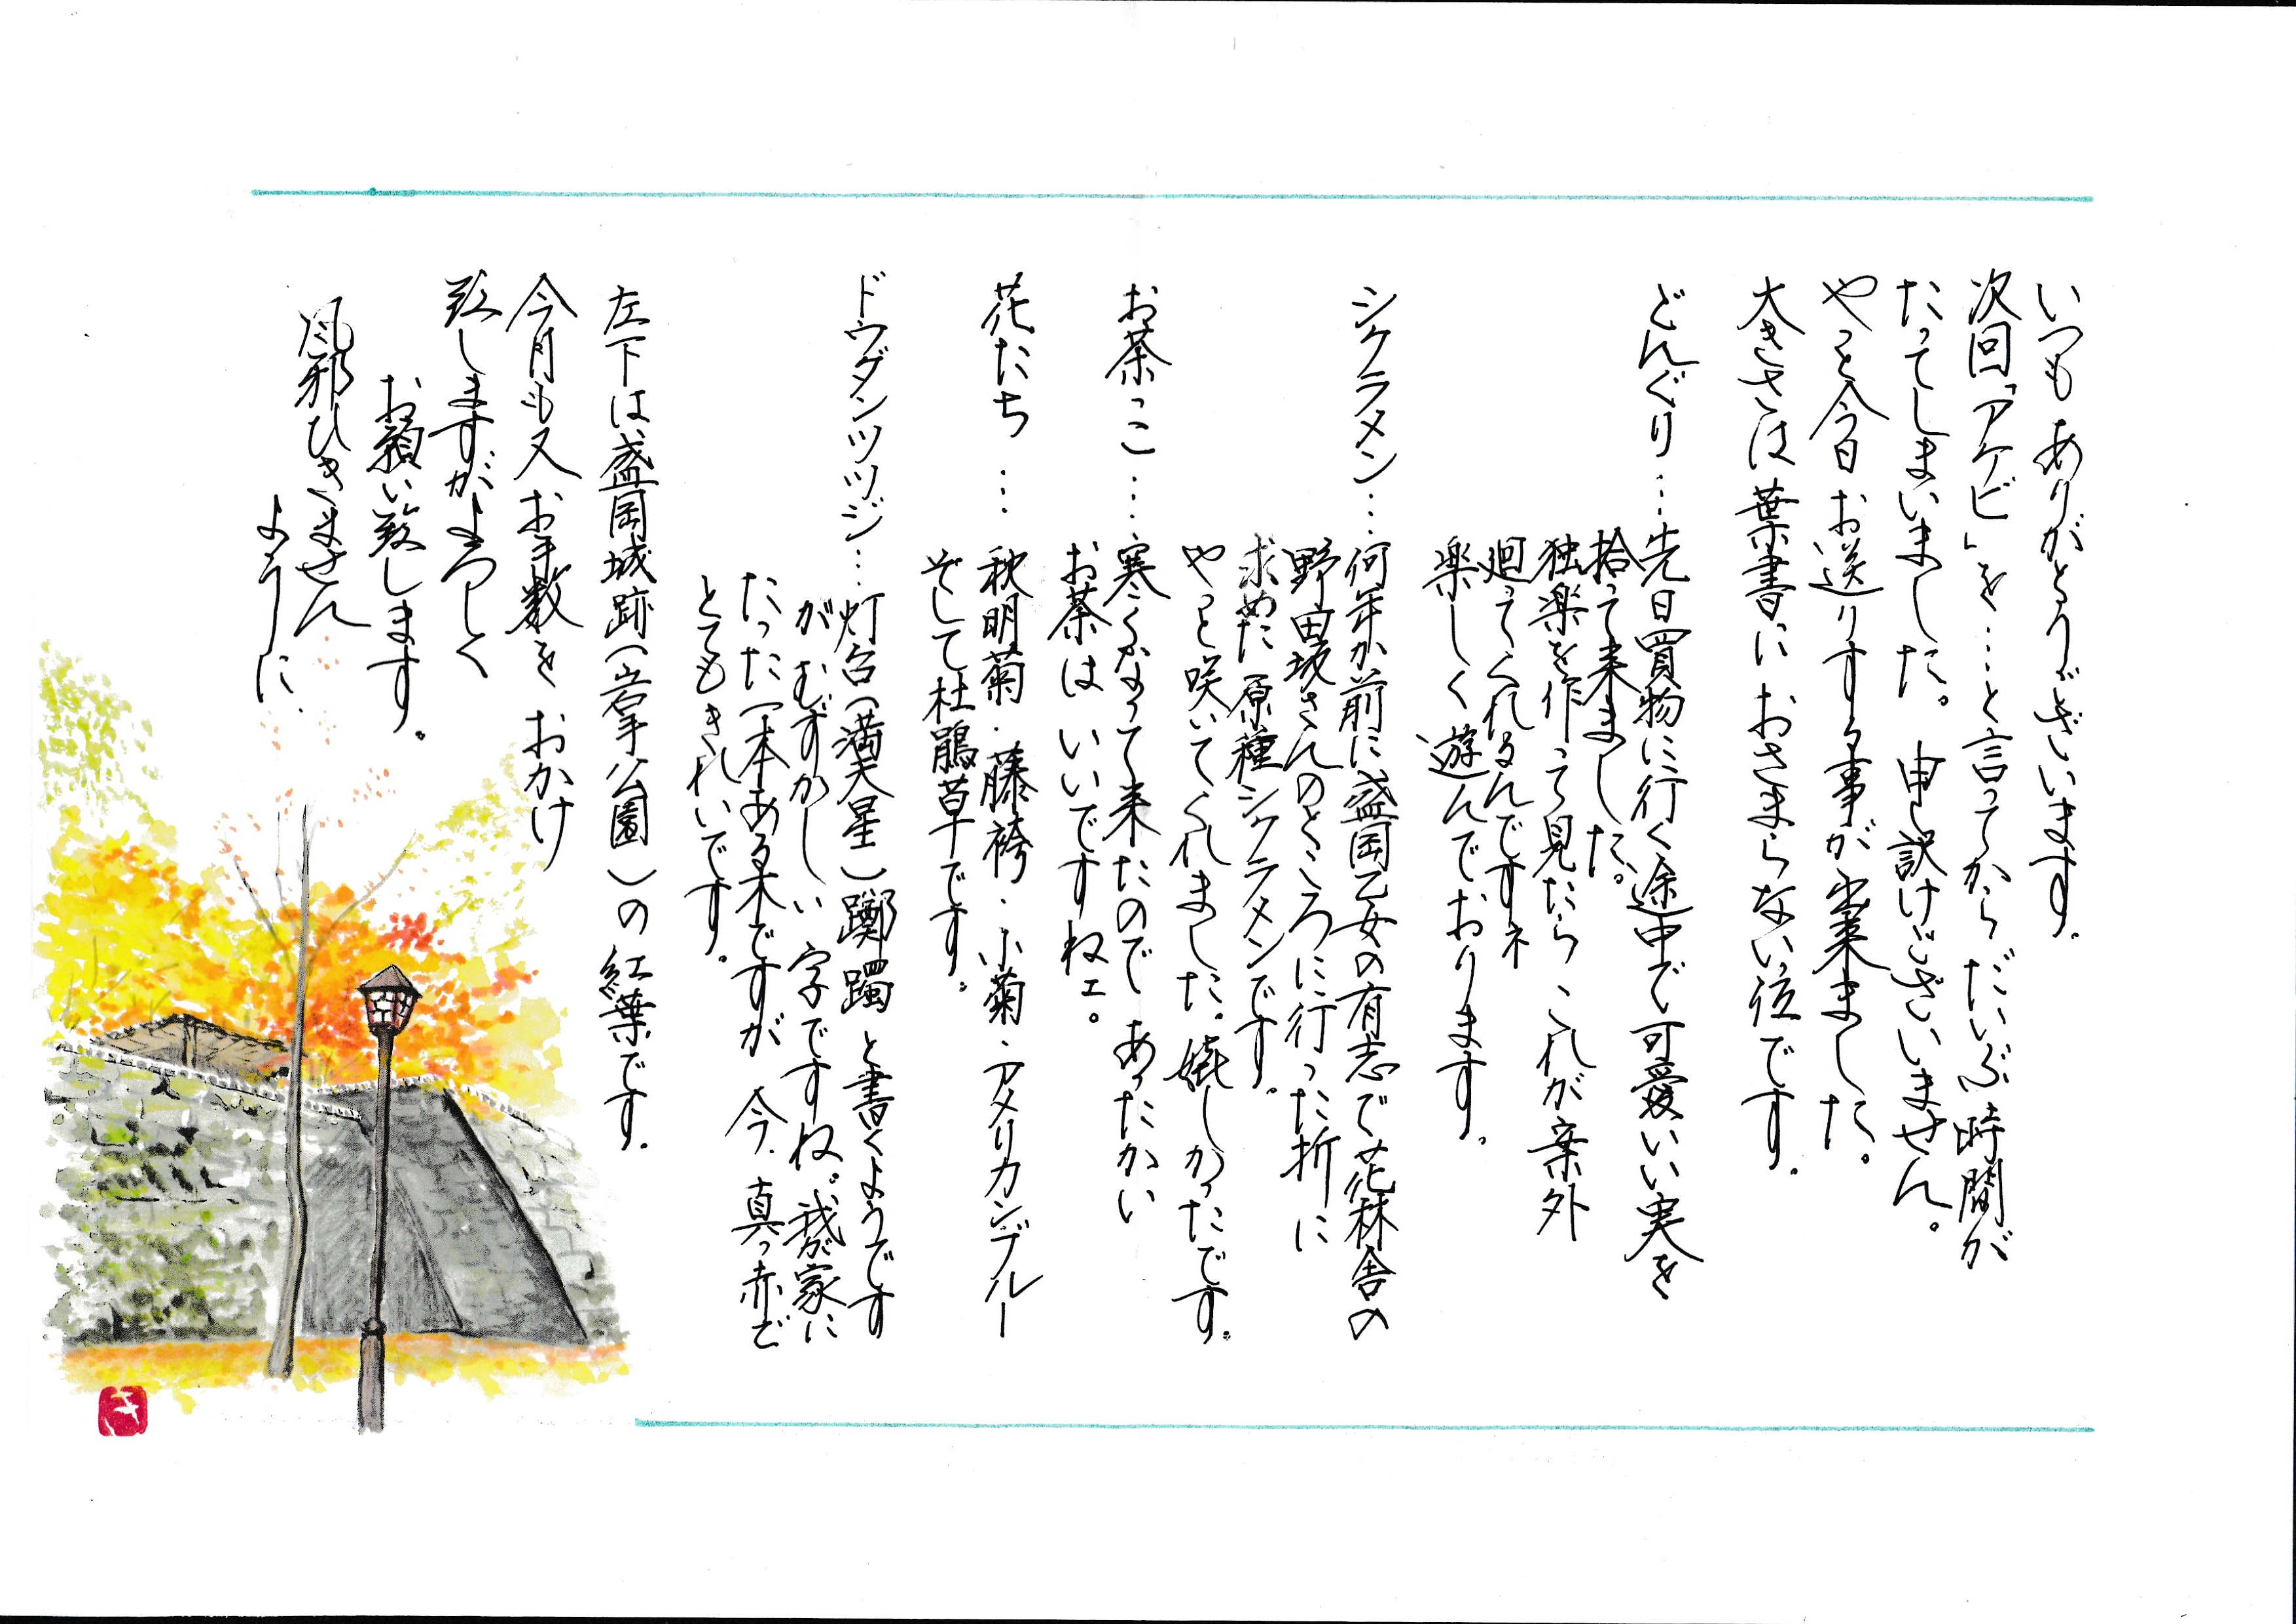 いつも ありがとうございます。
次回「アケビ」を…と言ってから だいぶ時間が
たってしまいました。 申し訳けございません。
やっと今日 お送りする事が出来ました。
大きさは葉書に おさまらない位です。
どんぐり…先日買物に行く途中で可愛いい実を
拾って来ました。
独楽を作って見たら これが案外
廻ってくれるんですネ
楽しく遊んでおります。
シクラメン…何年か前に盛岡乙女の有志で花林舎の
野田坂さんのところに行った折に
求めた原種シクラメンです。
やっと咲いてくれました。嬉しかったです。
お茶っこ…寒くなって来たので あったかい
お茶は いいですねェ。
花たち … 秋明菊・藤袴・小菊・アメリカンブルー
そして杜鵑草です。
ドウダンツツジ…灯台(満天星)躑躅 と書くようです
が むずかしい 字ですね。我が家に
たった一本ある木ですが 今、真っ赤で
とてもきれいです。
左下は、盛岡城跡(岩手公園)の 紅葉です。
今月も又 お手数を おかけ
致しますがよろしく
お願い致します。
風邪ひきません
ように